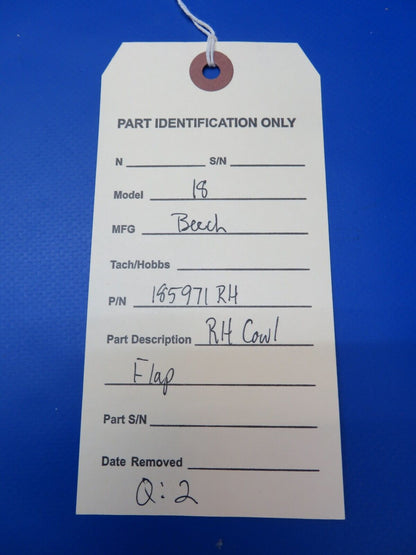 PART IDENTIFICATION ONLY
N S/N
Model 18
MFG Beech
Tach/Hobbs
P/N 185971 RH
Part Description RH Cowl
Flap
Part S/N
Date Removed
Q: 2